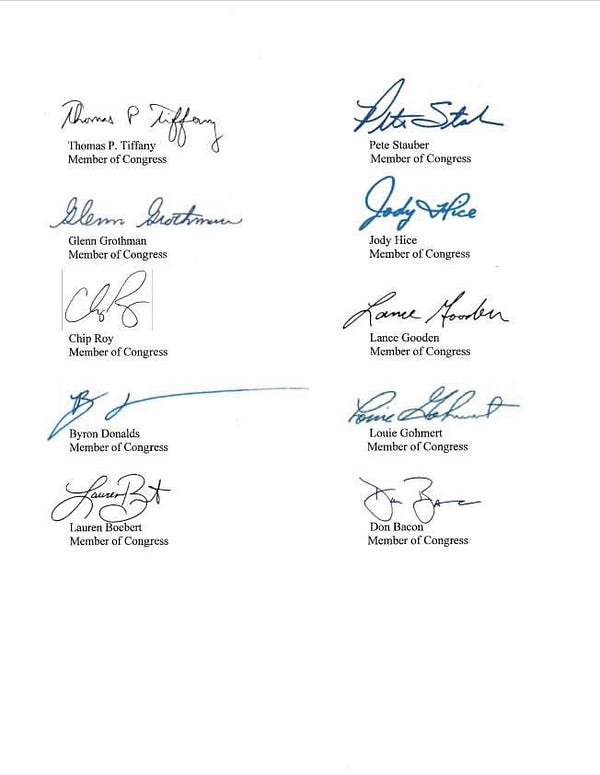 Thomas P Tiffany
Thomas P. Tiffany
Member of Congress
Pete Stauber
Pete Stauber
Member of Congress
Glenn Grothman
Glenn Grothman
Member of Congress
Jody Hice
Jody Hice
Member of Congress
Chip Roy
Chip Roy
Member of Congress
Lance Gooden
Lance Gooden
Member of Congress
Byron Donalds
Member of Congress
Louie Gohmert
Louie Gohmert
Member of Congress
Lauren Boebert
Member of Congress
Dan Bacon
Don Bacon
Member of Congress